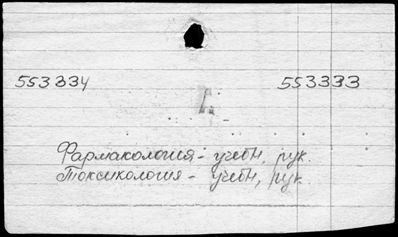 553334 553333
Фармакология - учебн. рук.
Токсикология - учебн, рук.